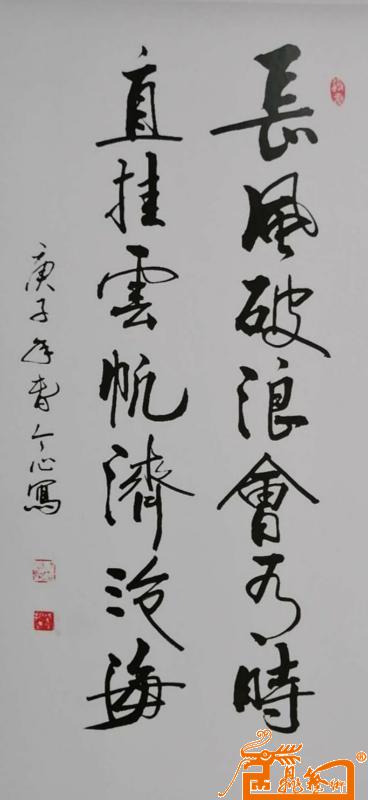 長風破浪會有時
直挂雲帆濟滄海
庚子年春
心寫